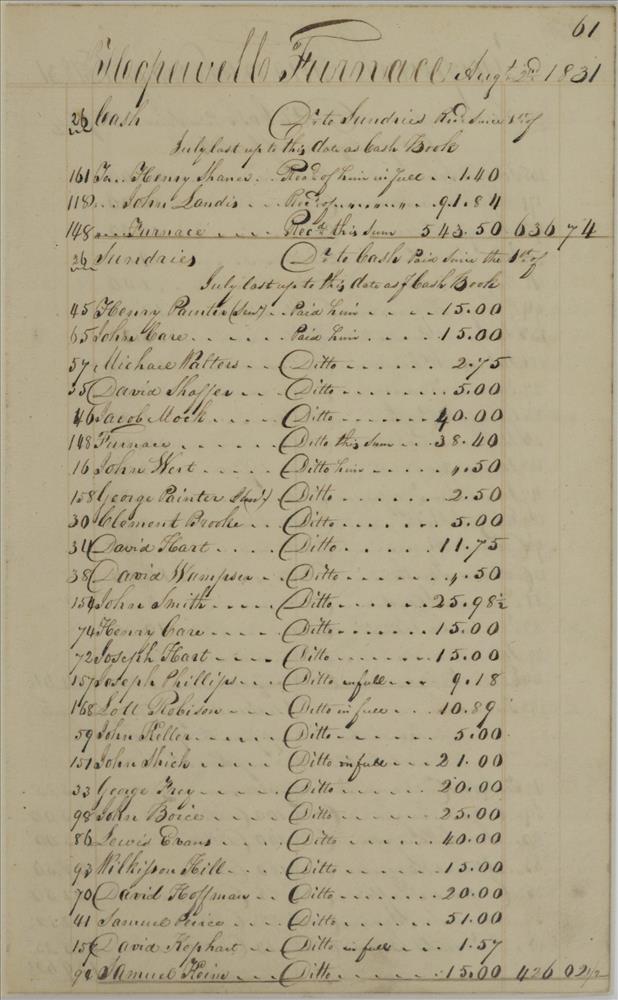 61
Hopewell Furnace Augt 2nd 1831
26 Cash Dr to Sundries Recd Since 1st of
July last up to this date as Cash Book
161 To .. Henry Shaner .. Recd of him in full .. 1.40
118 .. John Landis .. Recd of .. .. .. 91.84
148 .. Furnace .. Recd this Sum 543.50 636 74
26 Sundries Dr to Cash Paid Since the 1st of
July last up to this date as Cash Book
45 Henry Painter (Senr) .. Paid him .. 15.00
65 John Care .. Paid him .. 15.00
57 Michael Walters .. Ditto .. 2.75
35 David Shaffer .. Ditto .. 5.00
46 Jacob Mock .. Ditto .. 40.00
148 Furnace .. Ditto this Sum .. 38.40
16 John Wert .. Ditto him .. „.50
158 George Painter .. Ditto .. 2.50
30 Clement Brooke .. Ditto .. 5.00
31 David Hart .. Ditto .. 11.75
38 David Wampser .. Ditto .. „.50
154 John Smith .. Ditto .. 25.98½
74 Henry Care .. Ditto .. 15.00
72 Joseph Hart .. Ditto .. 15.00
157 Joseph Phillips .. Ditto in full .. 9.18
168 Lott Robison .. Ditto in full .. 10.89
59 John Keller .. Ditto .. 5.00
151 John Shick .. Ditto in full .. 21.00
33 George Frey .. Ditto .. 20.00
98 John Boice .. Ditto .. 25.00
86 Lewis Evans .. Ditto .. 40.00
93 Wilkisson Hill .. Ditto .. 15.00
70 David Hoffman .. Ditto .. 20.00
41 Samuel Peirce .. Ditto .. 51.00
156 David Kephart .. Ditto in full .. 1.57
92 Samuel Heine .. Ditto .. 15.00 426 02½